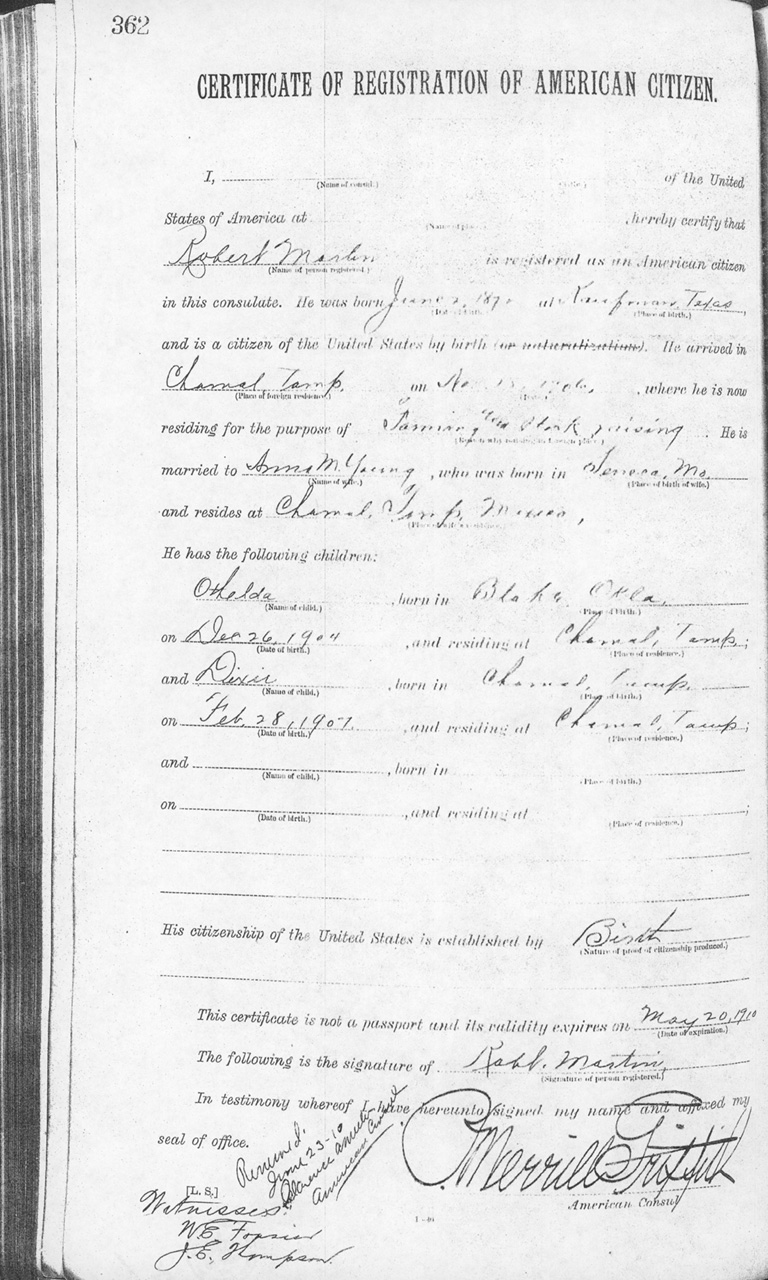 362
CERTIFICATE OF REGISTRATION OF AMERICAN CITIZEN.
I, of the United
(Name of consul.) (Title.)
States of America at , hereby certify that
(Name of place.)
Robert Martin is registered as an American citizen
(Name of person registered.)
in this consulate. He was born June 2, 187 at Kaufman, Texas
(Date of birth.) (Place of birth.)
and is a citizen of the United States by birth (or naturalization). He arrived in
Chamal, Tamp. on 1906, , where he is now
(Place of foreign residence.) (Date.)
residing for the purpose of Farming and Stock raising . He is
(Reason why residing in foreign place.)
married to Anna M. Young , who was born in Seneca, Mo.
(Name of wife.) (Place of birth of wife.)
and resides at Chamal, Tamp, Mexico,
(Place of wife's residence.)
He has the following children:
Othelda , born in Okla.
(Name of child.) (Place of birth.)
on Dec 26, 1904 , and residing at Chamal, Tamp.;
(Date of birth.) (Place of residence.)
and Dixie , born in Chamal, Tamp.
(Name of child.) (Place of birth.)
on Feb. 28, 1907. , and residing at Chamal, Tamp;
(Date of birth.) (Place of residence.)
and , born in
(Name of child.) (Place of birth.)
on , and residing at ;
(Date of birth.) (Place of residence.)
His citizenship of the United States is established by Birth
(Nature of proof of citizenship produced.)
This certificate is not a passport and its validity expires on May 20, 1910
(Date of expiration.)
The following is the signature of Robt. Martin,
(Signature of person registered.)
In testimony whereof I have hereunto signed my name and affixed my
seal of office.
Renewed:
June 23-10
American Consul
P. Merrill Griffith
American Consul
[L. S.]
Witnesses:
W.E. Frasier
J.E. Thompson.